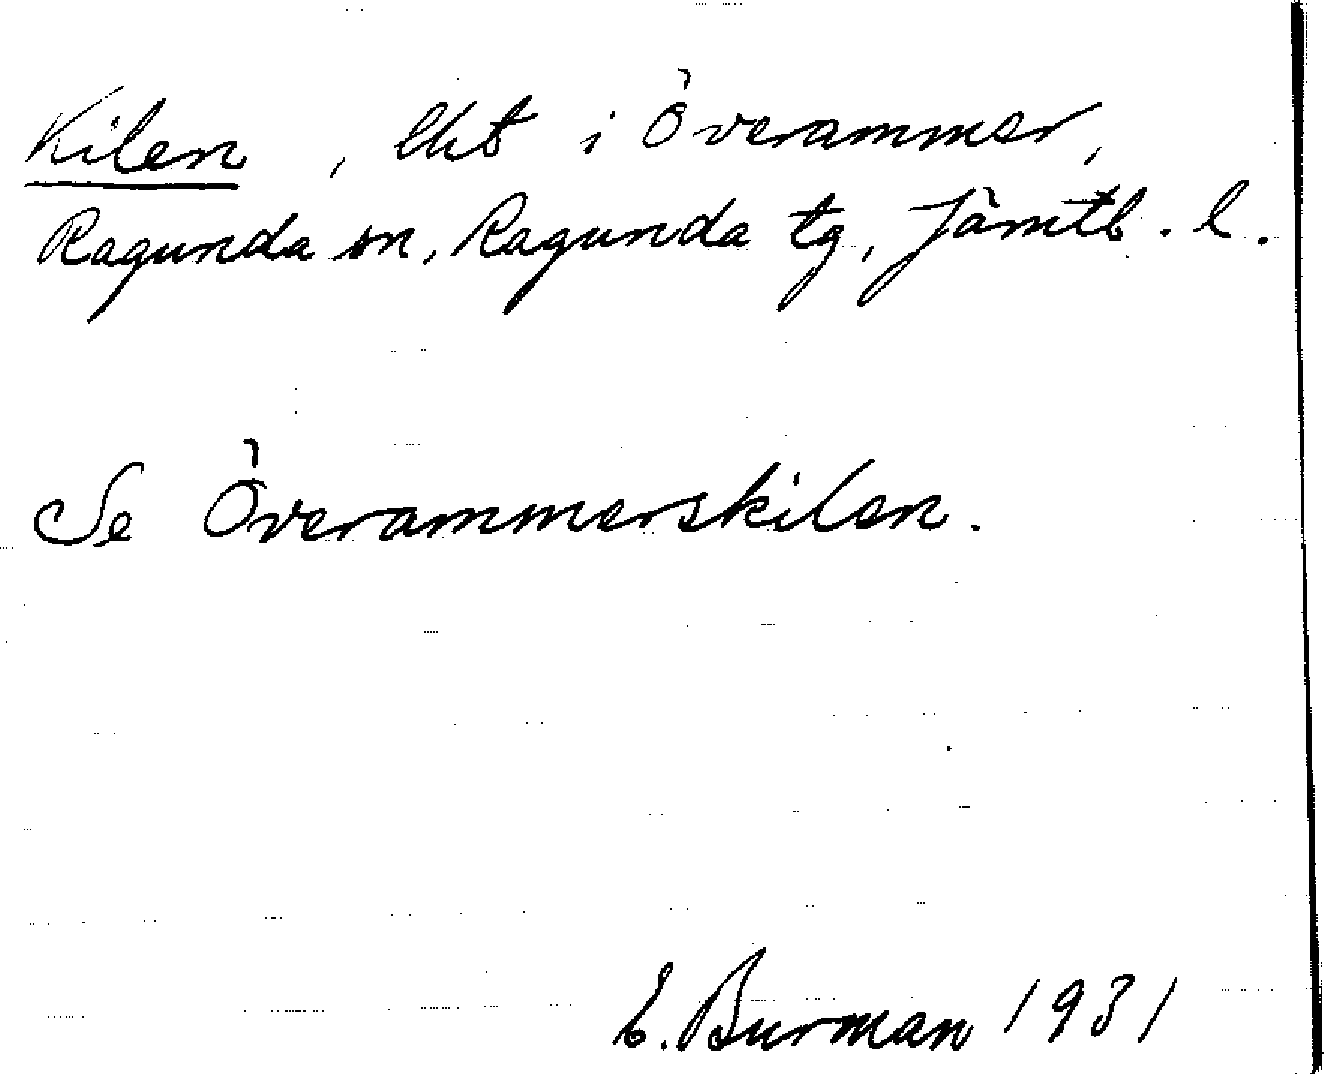 Kilen, lht i Överammer,
Ragunda sn, Ragunda tg, Jämtl. l.
Se Överammerskilen.
E. Burman 1931